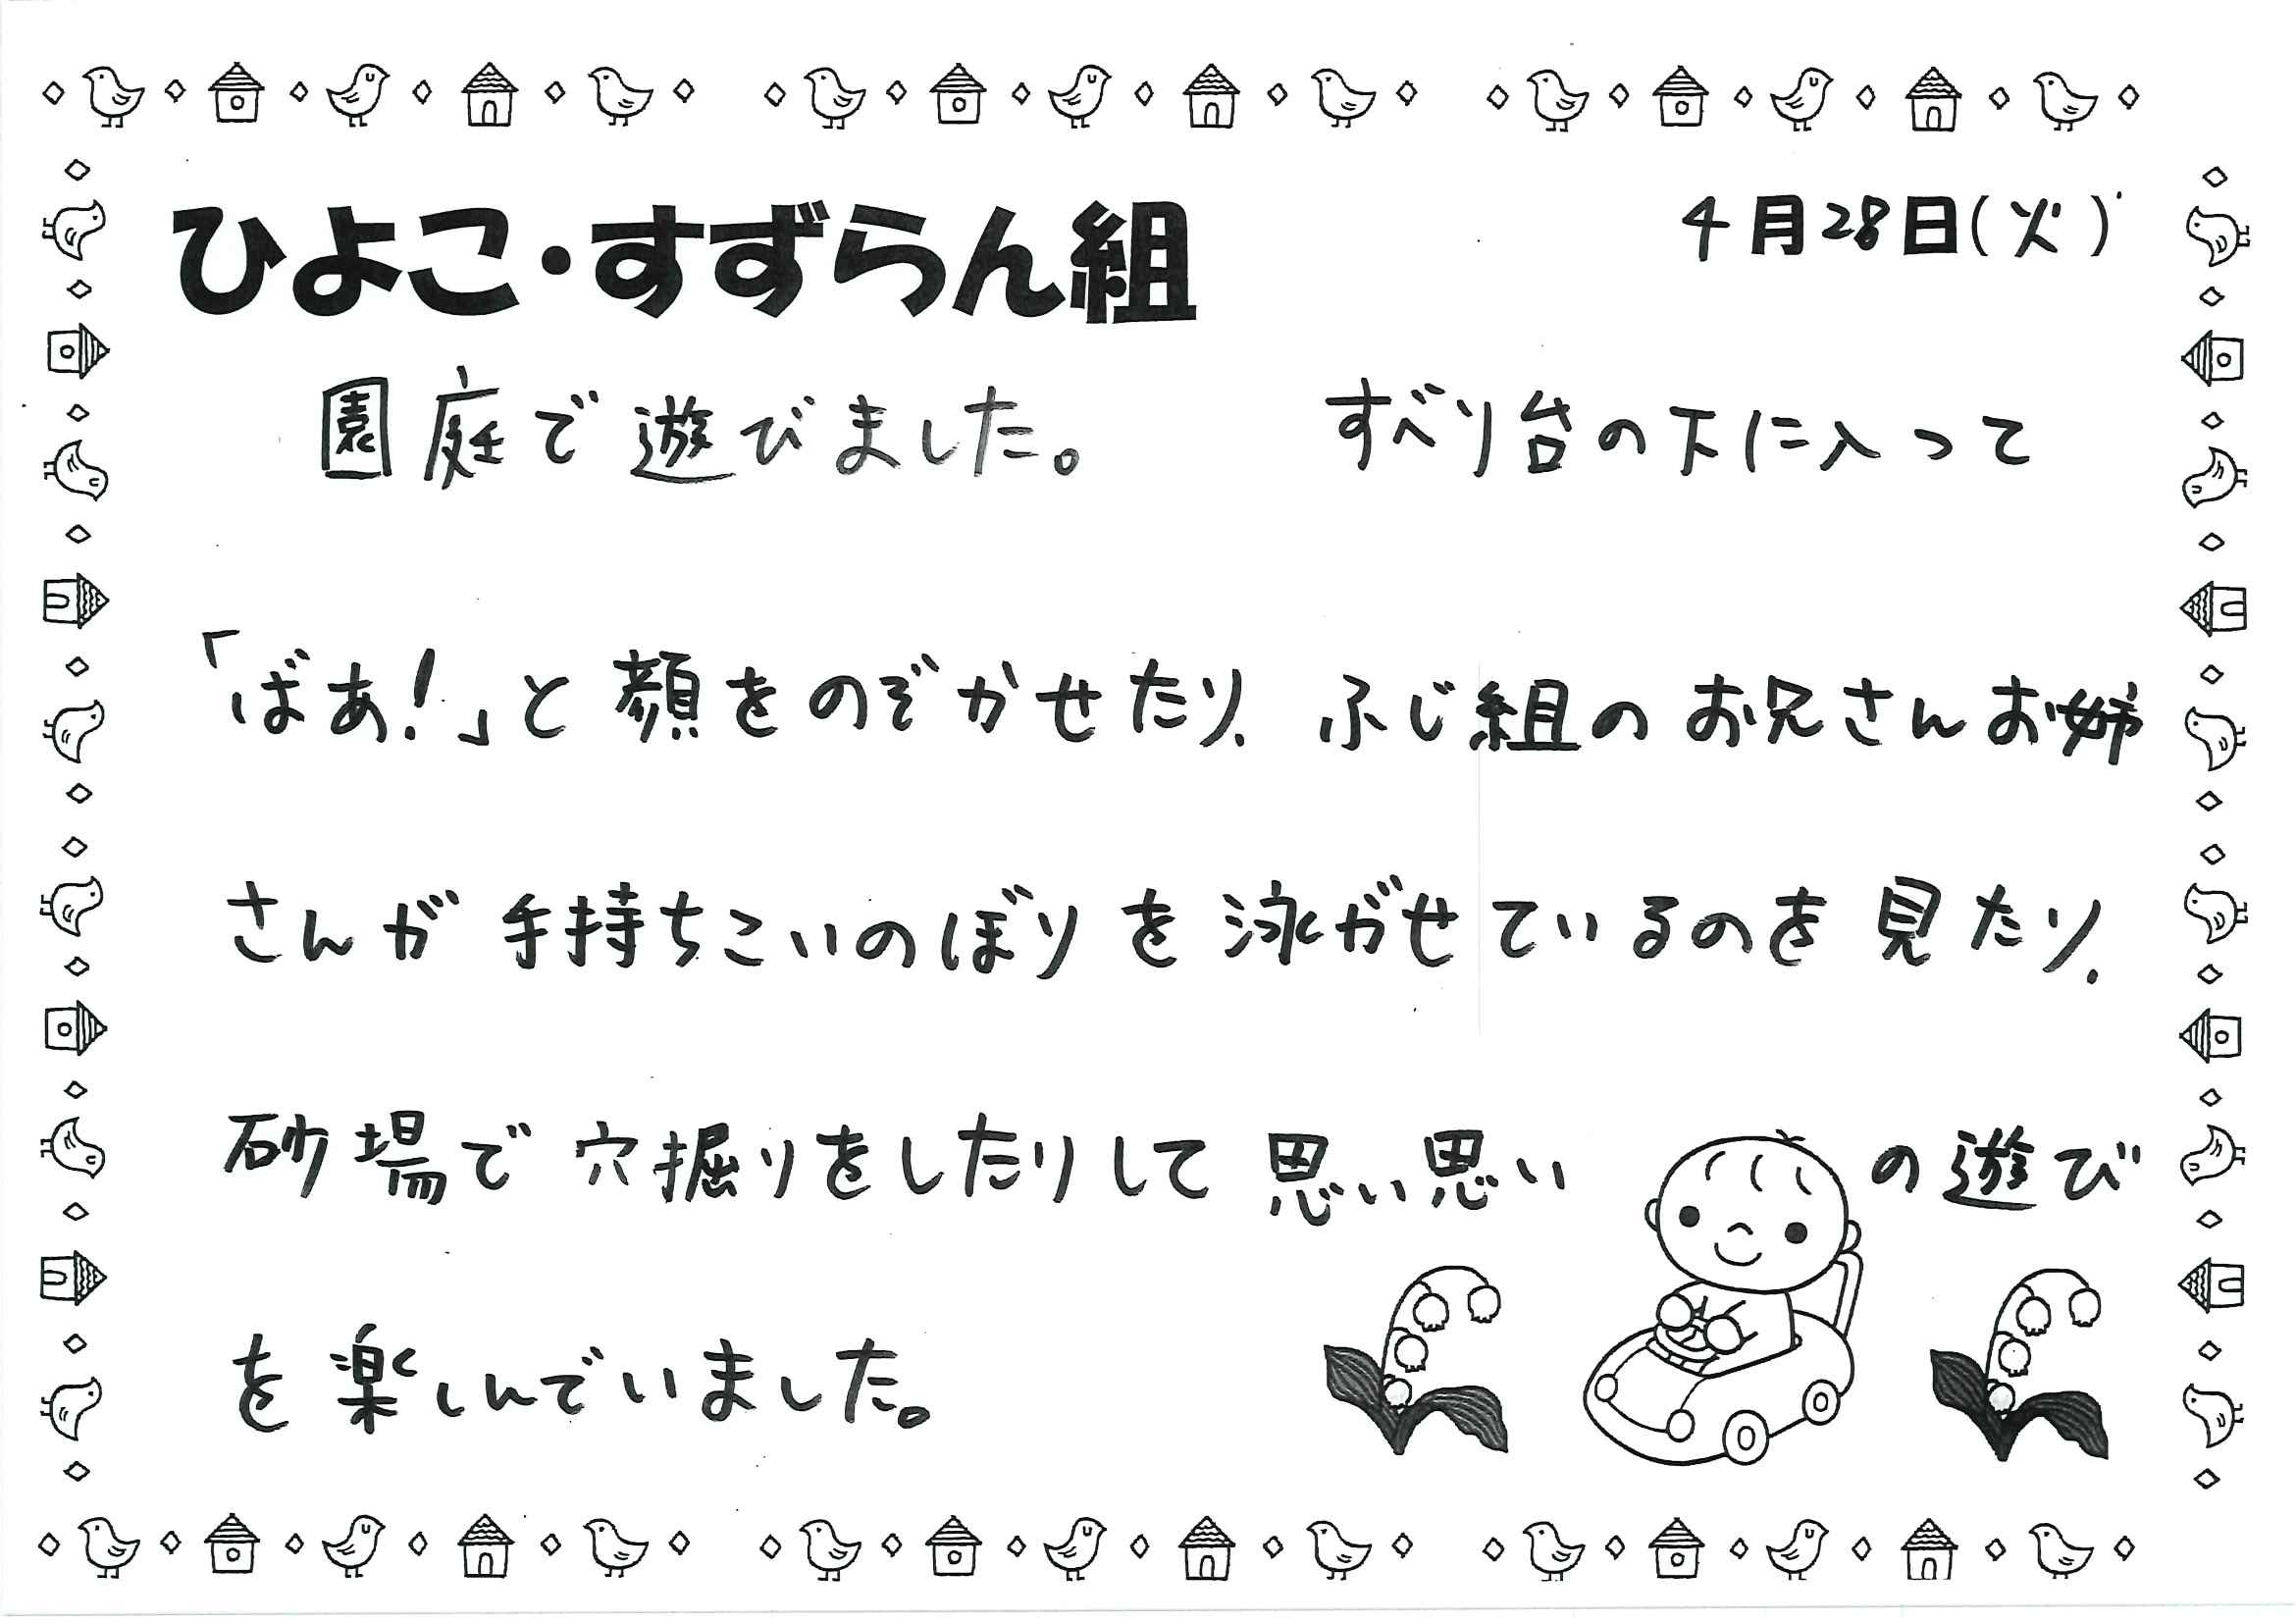 ひよこ・すずらん組
4月28日(火)
園庭で遊びました。 すべり台の下に入って
「ばあ!」と顔をのぞかせたり、ふじ組のお兄さんお姉
さんが手持ちこいのぼりを泳がせているのを見たり、
砂場で穴掘りをしたりして思い思いの遊び
を楽しんでいました。